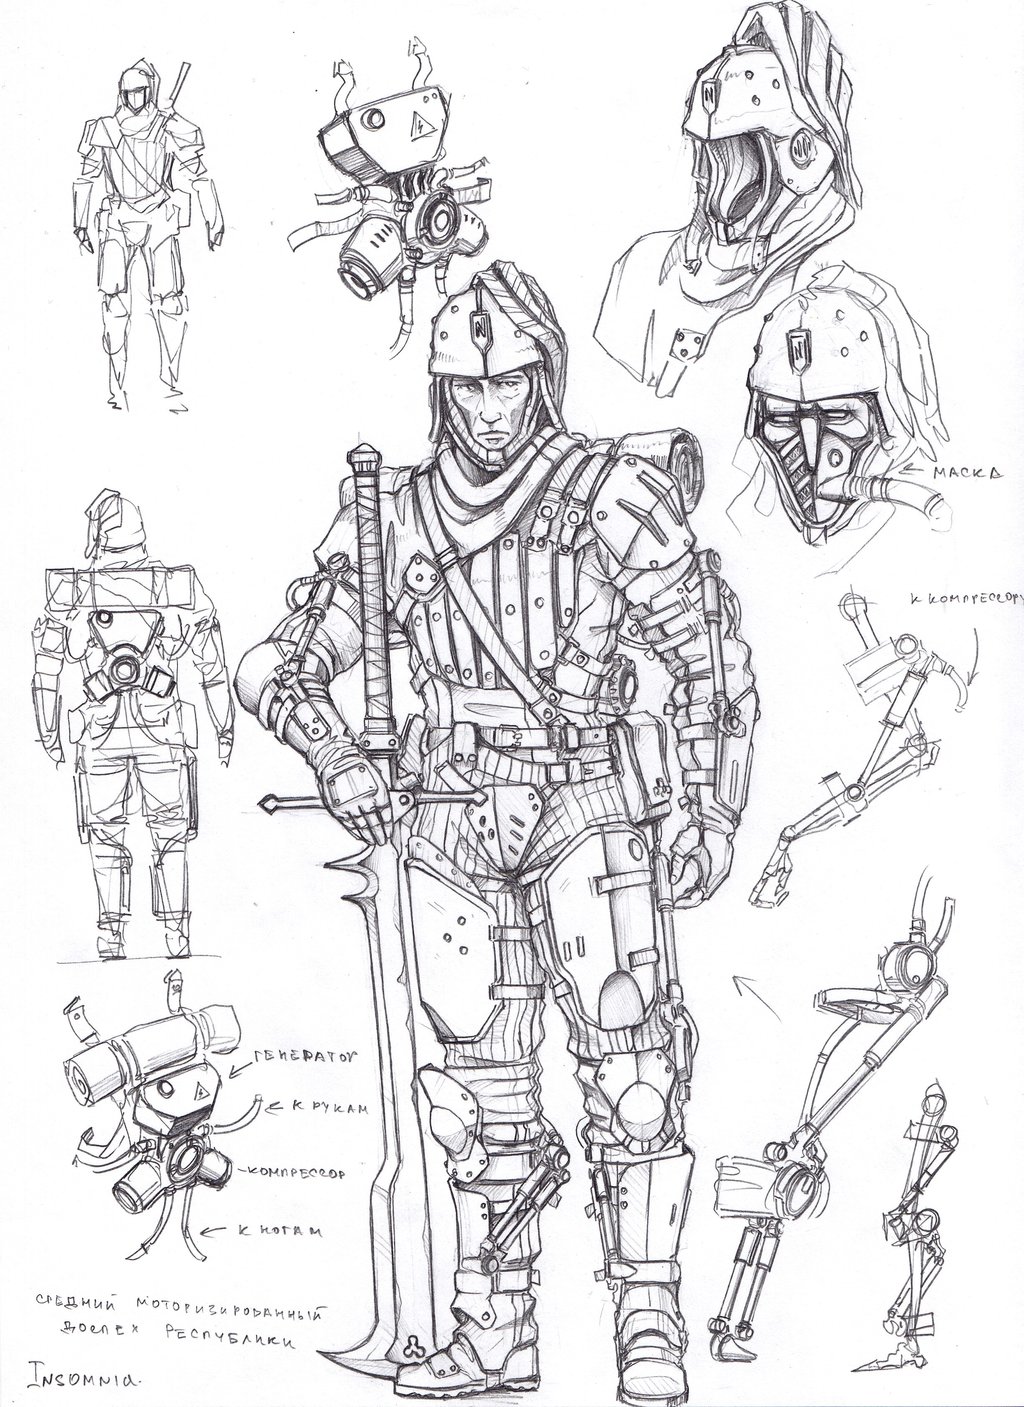 N
N
N
← МАСКА
К КОМПРЕССОРУ
ГЕНЕРАТОР
← К РУКАМ
-КОМПРЕССОР
← К НОГАМ
СРЕДНИЙ МОТОРИЗИРОВАННЫЙ
ДОСПЕХ РЕСПУБЛИКИ
INSOMNIA.